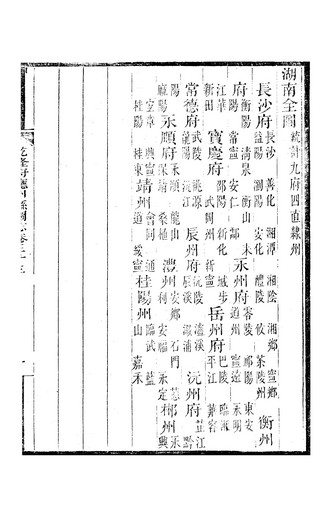 湖南全圖 統計九府四直隸州
長沙府 長沙 善化 湘潭 湘陰 湘鄉 寧鄉 益陽 瀏陽 安化 醴陵 攸 茶陵州 衡州
府 衡陽 清泉 衡山 耒陽 常寧 安仁 酃 永州府 零陵 祁陽 東安 道州 寧遠 永明
江華 新田 寶慶府 邵陽 新化 城步 武岡州 新寧 岳州府 巴陵 臨湘 平江 華容
常德府 武陵 桃源 龍陽 沅江 辰州府 沅陵 瀘溪 辰溪 漵浦 沅州府 芷江 黔
陽 麻陽 永順府 永順 龍山 保靖 桑植 澧州 安鄉 石門 慈利 安福 永定 郴州 永興
宜章 興寧 桂陽 桂東 靖州 會同 通道 綏寧 桂陽州 臨武 藍山 嘉禾
乾隆府廳州縣圖志卷